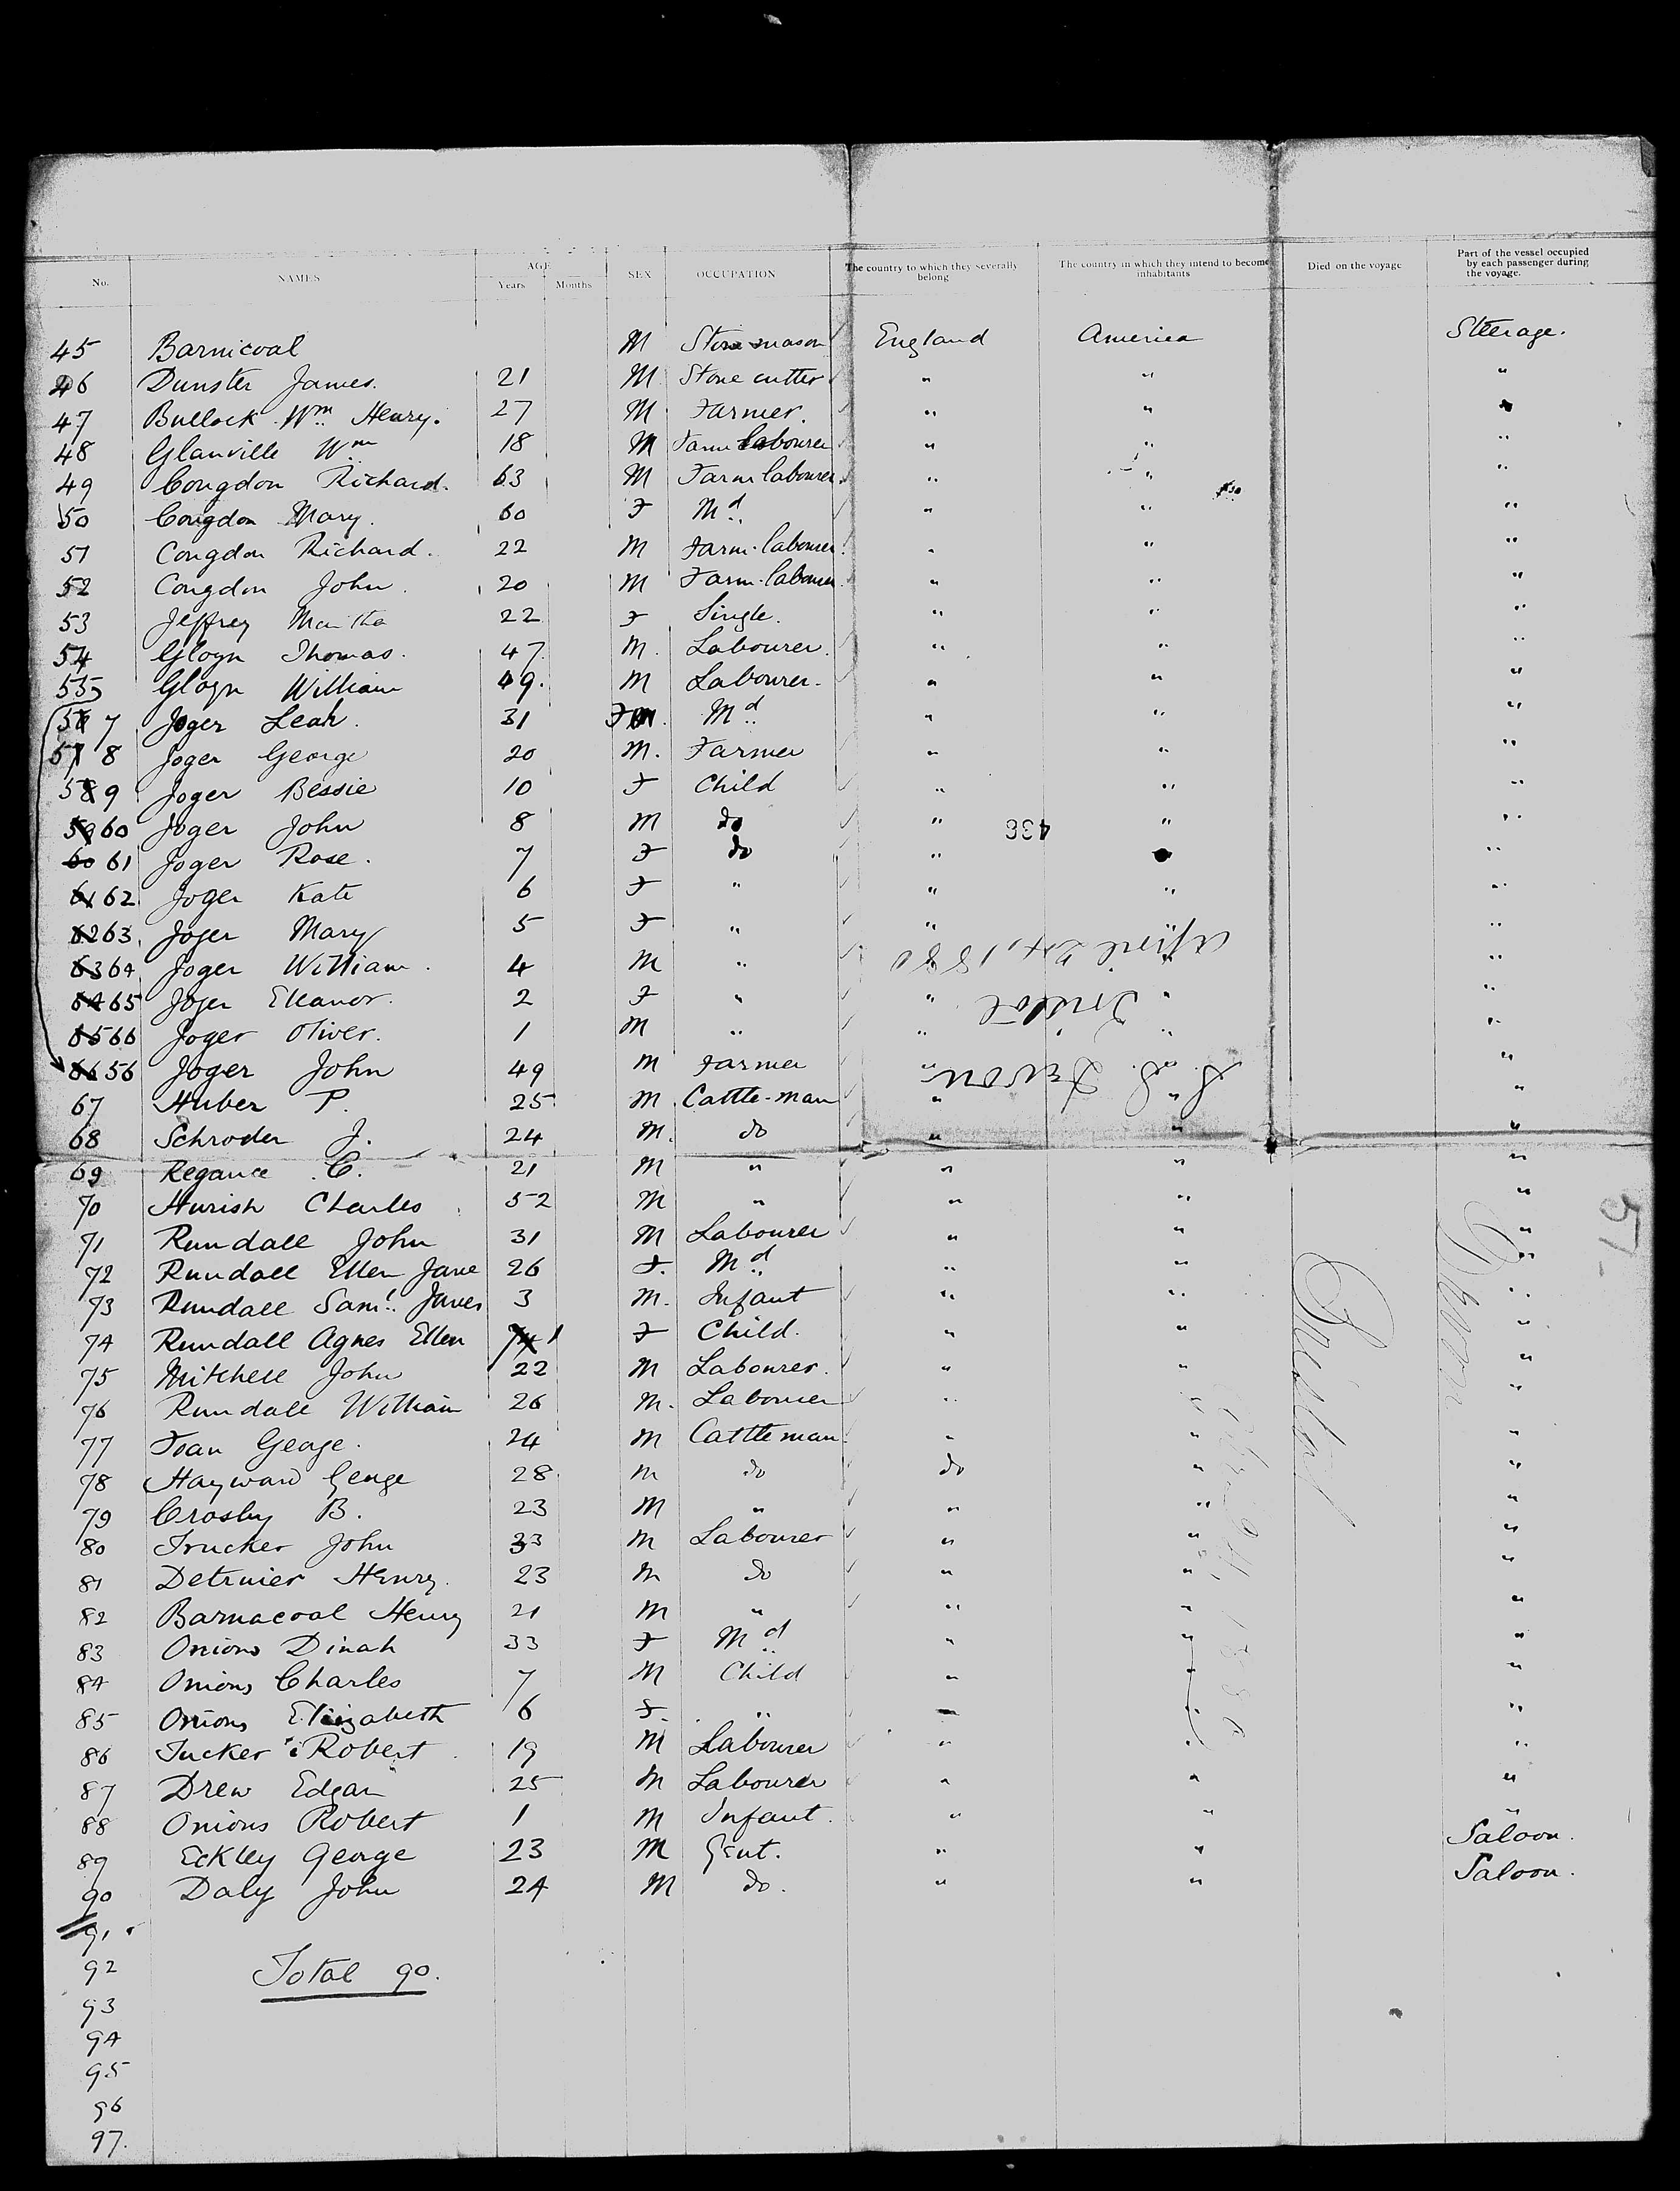 No. NAMES AGE Years Months SEX OCCUPATION The country to which they severally belong The country in which they intend to become inhabitants Died on the voyage Part of the vessel occupied by each passenger during the voyage.
45 Barnicoal M Stone mason England America Steerage.
46 Dunster James. 21 M Stone cutter " " "
47 Bullock Wm. Henry. 27 M Farmer. " " "
48 Glanville Wm 18 M Farm labourer " " "
49 Congdon Richard. 63 M Farm labourer. " " "
50 Congdon Mary. 60 F Md " " "
51 Congdon Richard. 22 M Farm-labourer. " " "
52 Congdon John. 20 M Farm-labourer. " " "
53 Jeffrey Martha 22 F Single. " " "
54 Gloyn Thomas. 47 M. Labourer. " " "
55 Gloyn William 49. M Labourer. " " "
57 Joger Leah. 31 F Md " " "
58 Joger George 20 M. Farmer " " "
59 Joger Bessie 10 F Child " " "
60 Joger John 8 M do " " "
61 Joger Rose. 7 F do " "
62 Joger Kate 6 F " " " "
63 Joger Mary 5 F " " " "
64 Joger William. 4 M " " " "
65 Joger Eleanor. 2 F " " " "
66 Joger Oliver. 1 M " " " "
56 Joger John 49 M Farmer " " "
67 Huber P. 25 M. Cattle-man " " "
68 Schroder J. 24 M. do " " "
69 Regance C. 21 M " " " "
70 Hurish Charles 52 M " " " "
71 Rundall John 31 M Labourer " " "
72 Rundall Ellen Jane 26 F. Md " " "
73 Rundall Saml. James 3 M. Infant " " "
74 Rundall Agnes Ellen 1 F Child. " " "
75 Mitchell John 22 M Labourer. " " "
76 Rundall William 26 M. Labourer " " "
77 George. 24 M Cattle man. " " "
78 Hayward George 28 M do do " "
79 Crosby B. 23 M " " " "
80 Trucker John 33 M Labourer " " "
81 Detruier Henry. 23 M do " " "
82 Barnacoal Henry 21 M " " " "
83 Onions Dinah 33 F Md " " "
84 Onions Charles 7 M Child " " "
85 Onions Elizabeth 6 F " " " "
86 Tucker Robert 19 M Labourer " " "
87 Drew Edgar 25 M Labourer " " "
88 Onions Robert 1 M Infant. " " "
89 Eckley George 23 M Gent. " " Saloon.
90 Daly John 24 M do. " " Saloon.
91
92 Total 90.
93
94
95
96
97.
S.S. Devon
Bristol
April 24, 1880
436
Devon
Bristol